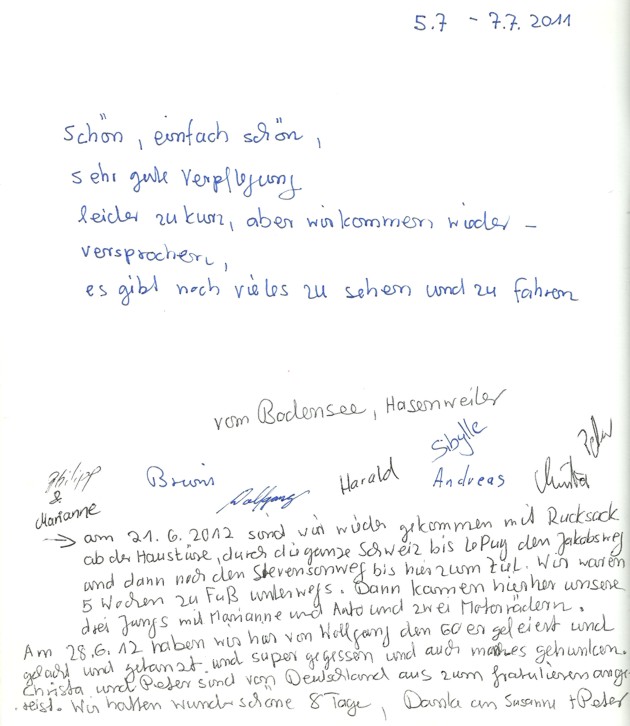 5.7 - 7.7. 2011
Schön, einfach schön,
sehr gute Verpflegung
leider zu kurz, aber wir kommen wieder -
versprochen,
es gibt noch vieles zu sehen und zu fahren
vom Bodensee, Hasenweiler
Philipp & Marianne
Wolfgang
Harald
Sibylle
Andreas
Peter
→ am 21.6.2012 sind wir wieder gekommen mit Rucksack
ab der Haustüre, durch die ganze Schweiz bis LePuy den Jakobsweg
und dann noch den Stevensonweg bis hier zum Ziel. Wir waren
5 Wochen zu Fuß unterwegs. Dann kamen hierher unsere
drei Jungs mit Marianne und Auto und zwei Motorrädern.
Am 28.6.12 haben wir hier von Wolfgang den 60er gefeiert und
gelacht und getanzt und super gegessen und auch manches getrunken.
Christa und Peter sind von Deutschland aus zum gratulieren ange-
reist. Wir hatten wunderschöne 8 Tage, Danke an Susanne + Peter